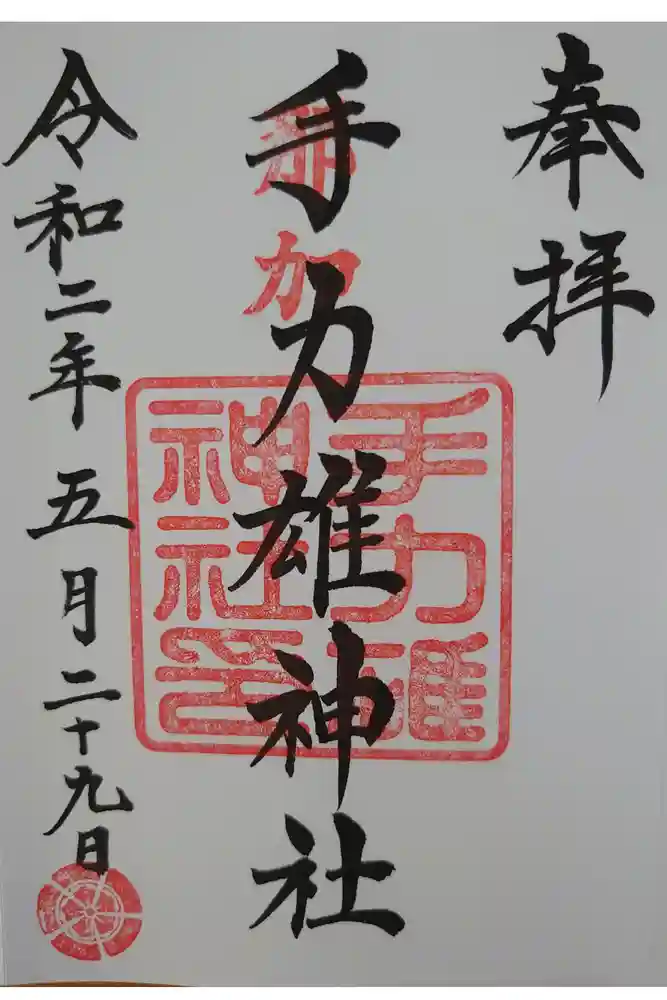 奉拝
那加
手力雄神社
手力雄
神社印
令和二年五月二十九日